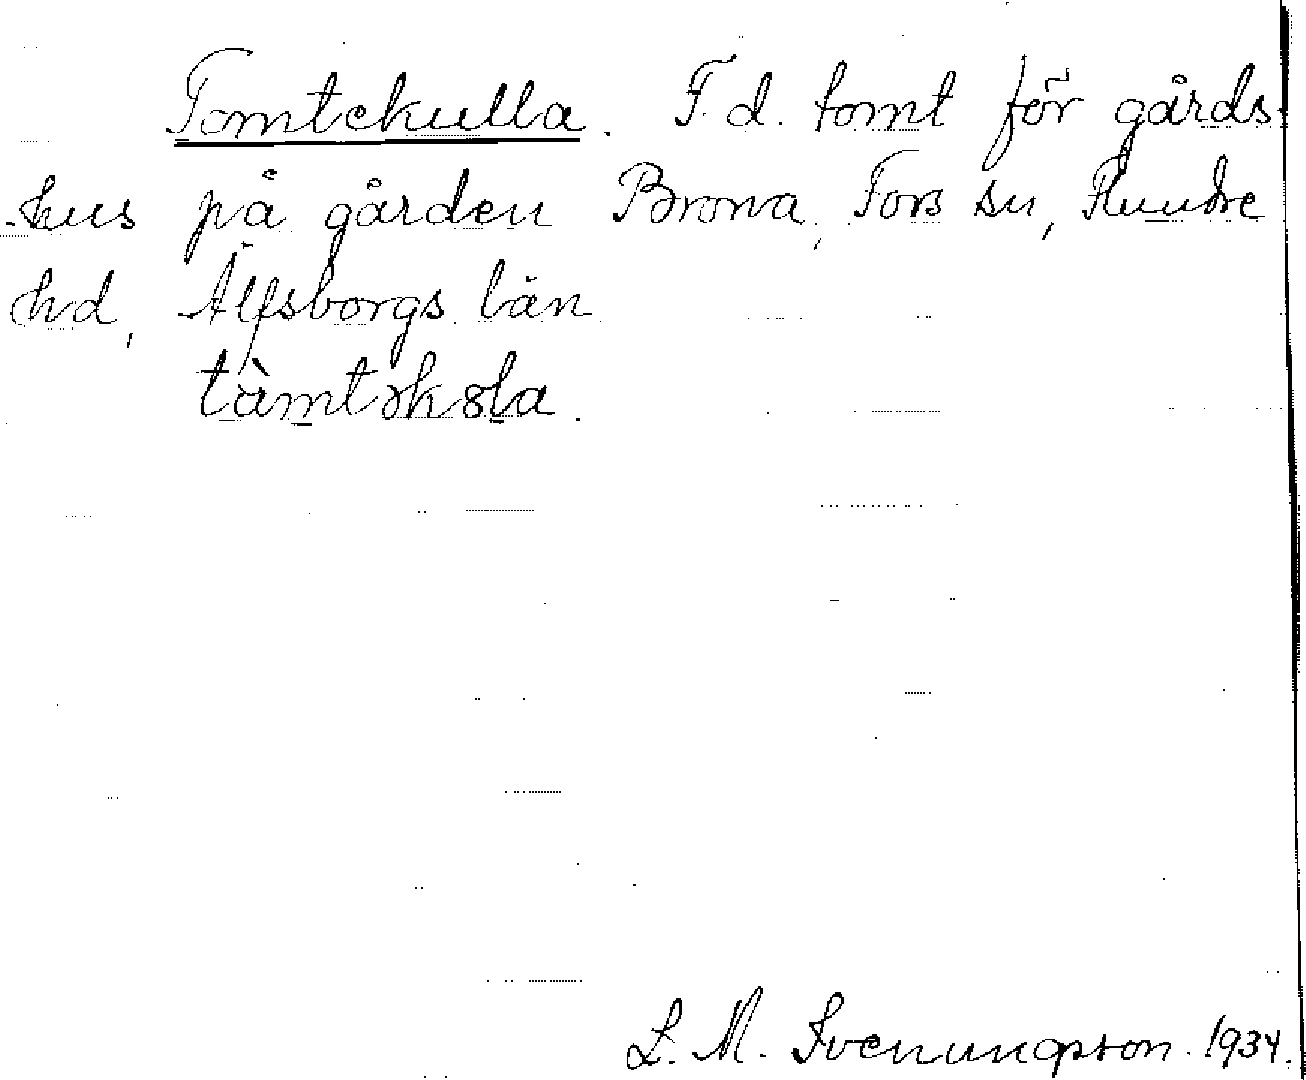 Tomtekulla. F. d. tomt för gårds-
hus på gården Brona, Fors sn, Flundre
hd, Älfsborgs län
L. M. Svenungsson. 1934.